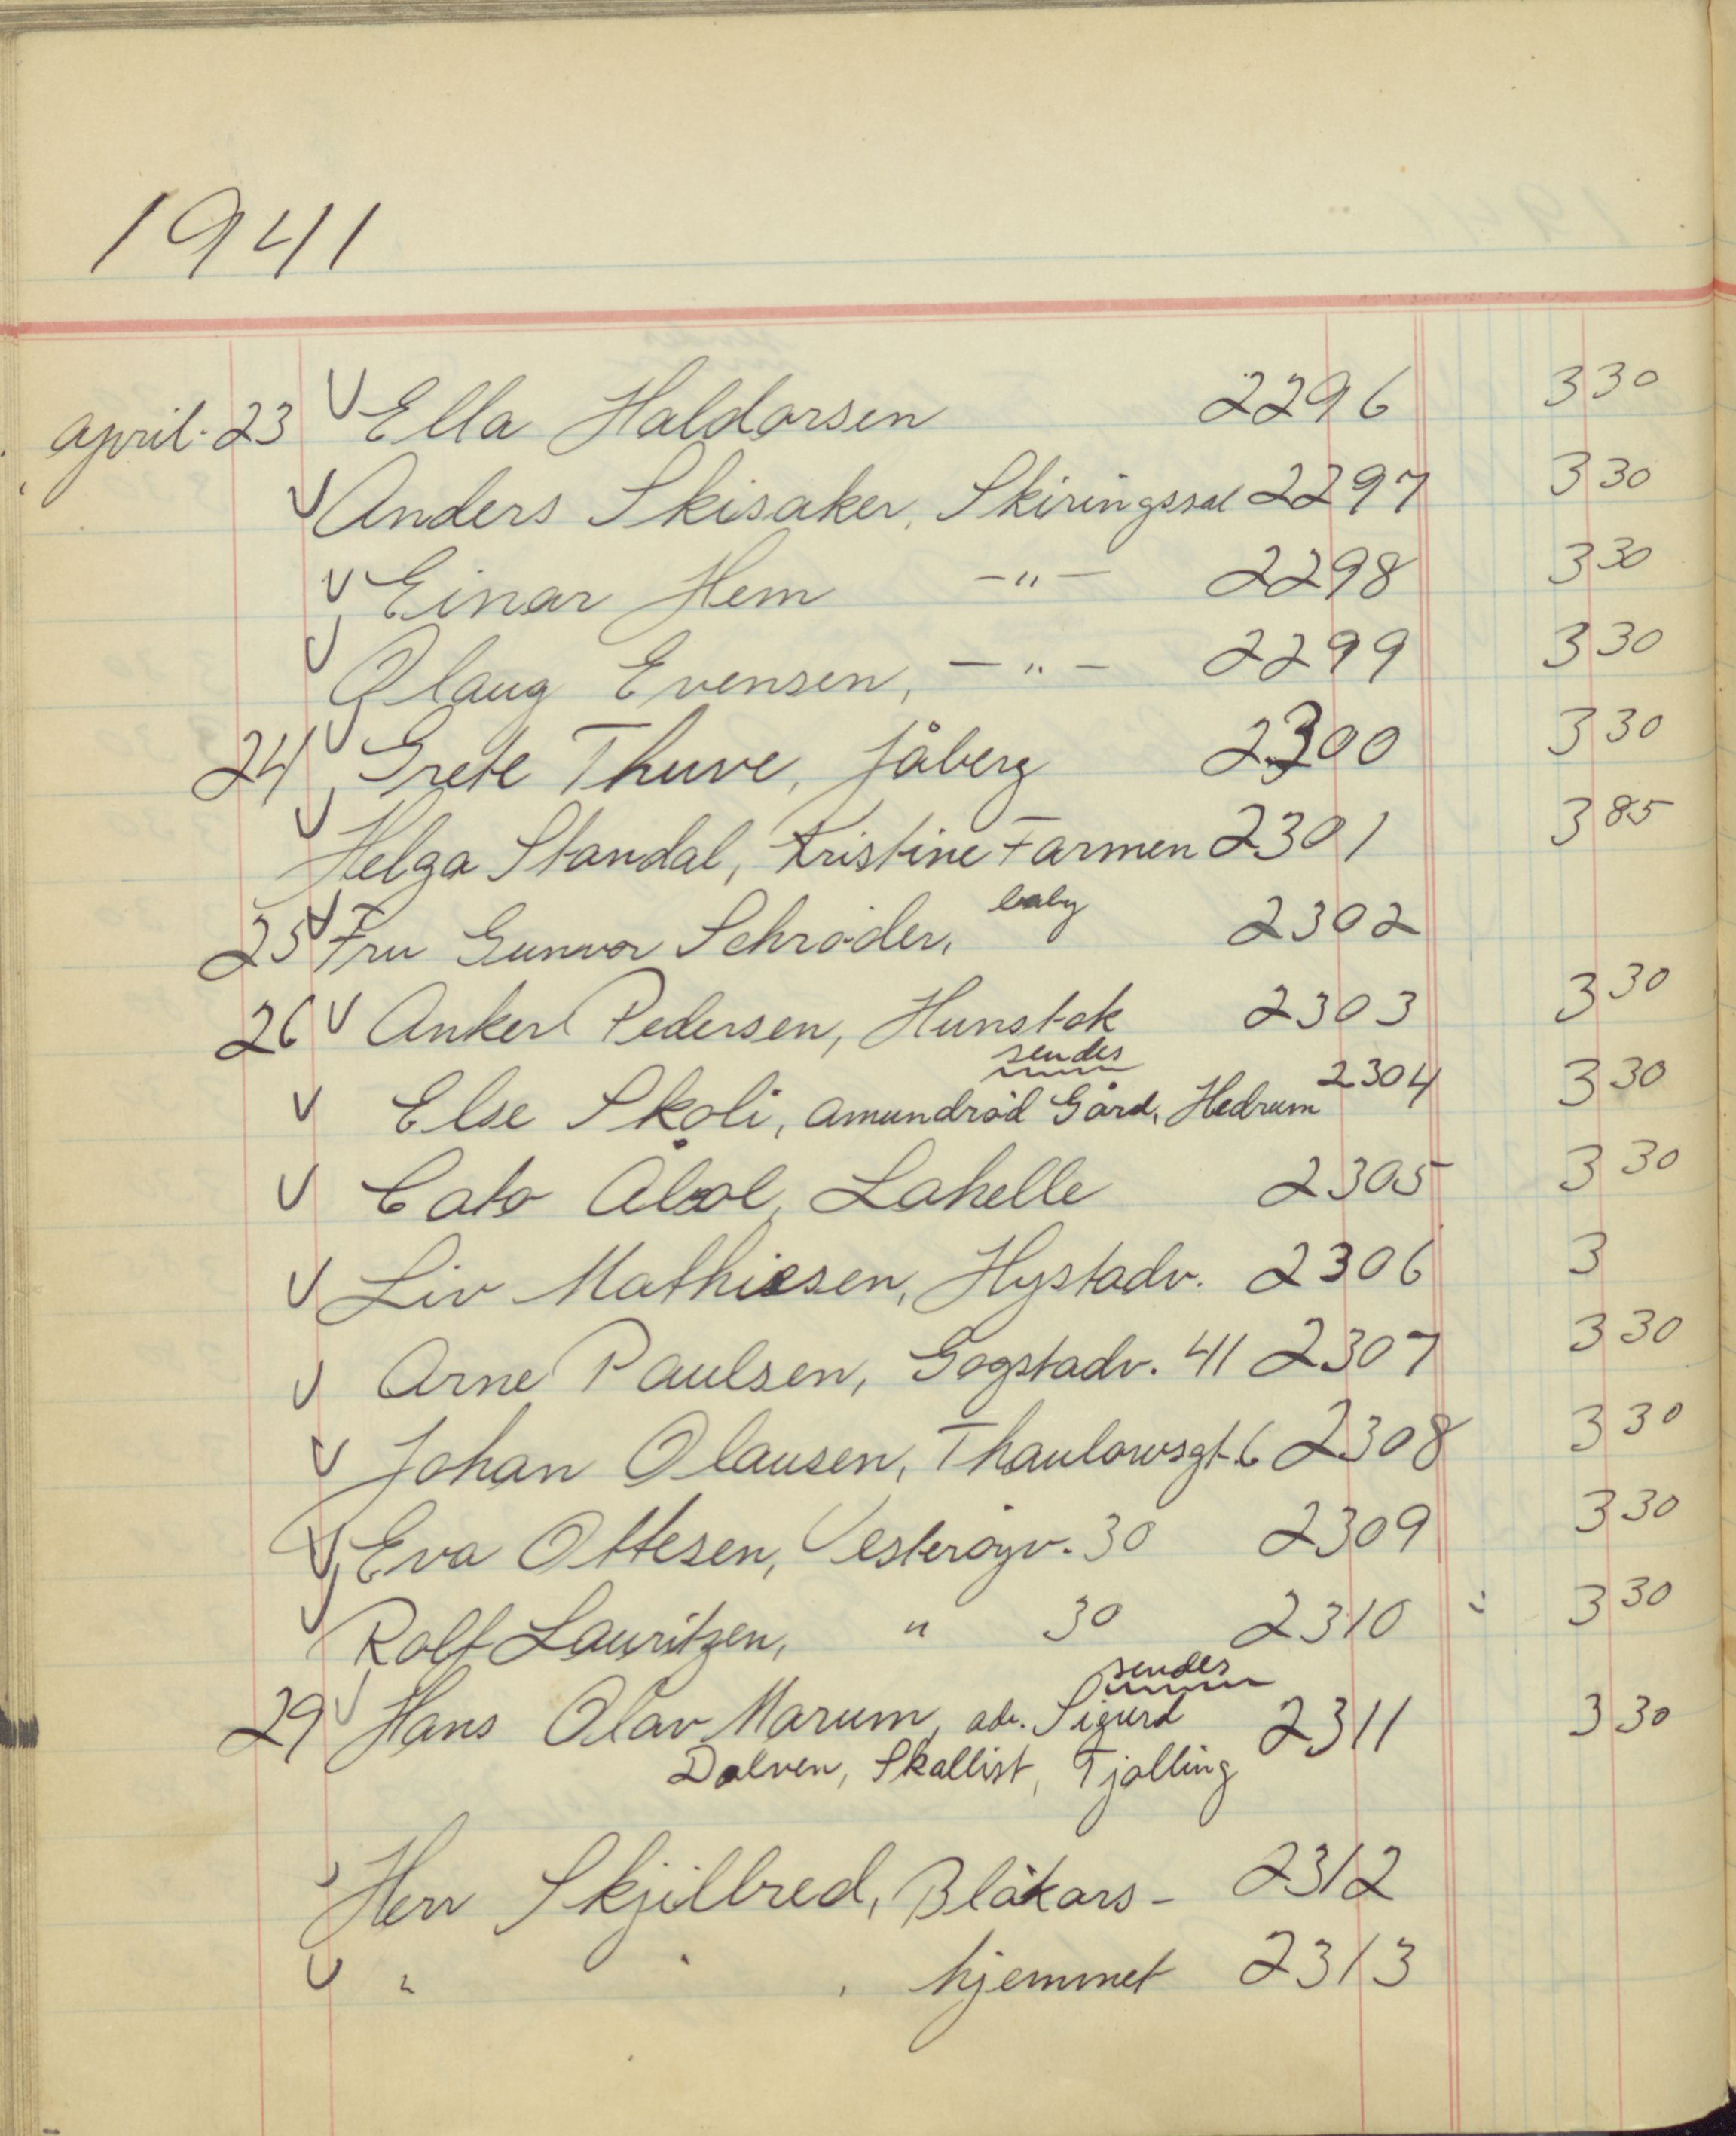 1941
april. 23 V Ella Haldorsen 2296 3 30
V Anders Skisaker, Skiringssal 2297 3 30
V Einar Hem —"— 2298 3 30
V Olaug Evensen, —"— 2299 3 30
24 V Grete Thuve, Jåberg 2300 3 30
V Helga Standal, Kristine Farmen 2301 3 85
25 V Fru Gunvor Schrøder, baby 2302
26 V Anker Pedersen, Hunstok 2303 3 30
sendes
V Else Skoli, Amundrød Gård, Hedrum 2304 3 30
V Cato Lahelle 2305 3 30
V Liv Mathisen, Hystadv. 2306 3
V Arne Paulsen, Gogstadv. 41 2307 3 30
V Johan Olausen, Thaulowsgt. 6 2308 3 30
V Eva Ottesen, Vesterøyv. 30 2309 3 30
V Rolf Lauritzen, " 30 2310 3 30
sendes
29 V Hans Olav Marum, adr. Sigurd 2311 3 30
Dalven, Skallist, Tjølling
Herr Skjilbred, Blåkors- 2312
V " " " hjemmet 2313